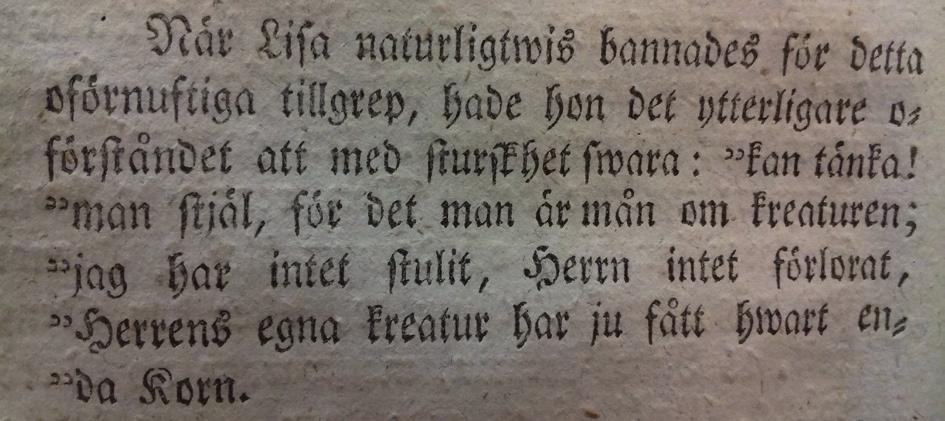 När Lisa naturligtwis bannades för detta
oförnuftiga tillgrep, hade hon det ytterligare o-
förståndet att med sturskhet swara: ”kan tänka!
”man stjäl, för det man är mån om kreaturen;
”jag har intet stulit, Herrn intet förlorat,
”Herrens egna kreatur har ju fått hwart en-
”da Korn.